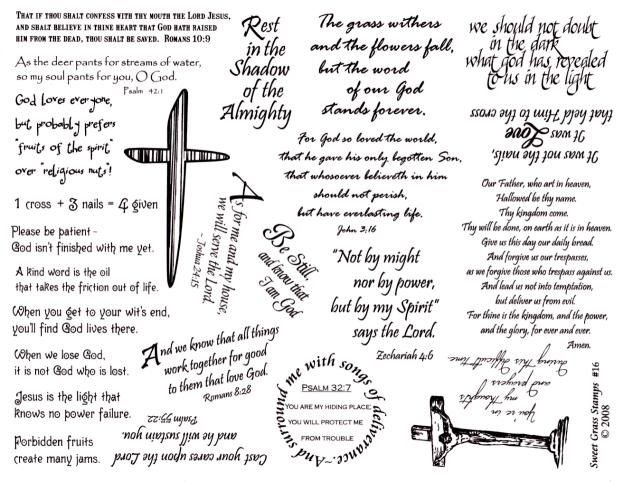 That if thou shalt confess with thy mouth the Lord Jesus,
and shalt believe in thine heart that God hath raised
him from the dead, thou shalt be saved. Romans 10:9
As the deer pants for streams of water,
so my soul pants for you, O God.
Psalm 42:1
God loves everyone,
but probably prefers
"fruits of the spirit"
over "religious nuts"!
1 cross + 3 nails = 4 given
Please be patient -
God isn't finished with me yet.
A kind word is the oil
that takes the friction out of life.
When you get to your wit's end,
you'll find God lives there.
When we lose God,
it is not God who is lost.
Jesus is the light that
knows no power failure.
Forbidden fruits
create many jams.
Rest
in the
Shadow
of the
Almighty
As for me and my house,
we will serve the Lord.
~ Joshua 24:15
Be Still,
and know that
I am God
And we know that all things
work together for good
to them that love God.
Romans 8:28
Cast your cares upon the Lord
and he will sustain you
Psalm 55:22
The grass withers
and the flowers fall,
but the word
of our God
stands forever.
For God so loved the world,
that he gave his only begotten Son,
that whosoever believeth in him
should not perish,
but have everlasting life.
John 3:16
"Not by might
nor by power,
but by my Spirit"
says the Lord.
Zechariah 4:6
And surround me with songs of deliverance~
Psalm 32:7
You are my hiding place;
you will protect me
from trouble
we should not doubt
in the dark
what god has revealed
to us in the light
It was not the nails,
It was Love
that held Him to the cross
Our Father, who art in heaven,
Hallowed be thy name.
Thy kingdom come.
Thy will be done, on earth as it is in heaven.
Give us this day our daily bread.
And forgive us our trespasses,
as we forgive those who trespass against us.
And lead us not into temptation,
but deliver us from evil.
For thine is the kingdom, and the power,
and the glory, for ever and ever.
Amen.
You're in
my thoughts
and prayers
during this difficult time
Sweet Grass Stamps #16
© 2008